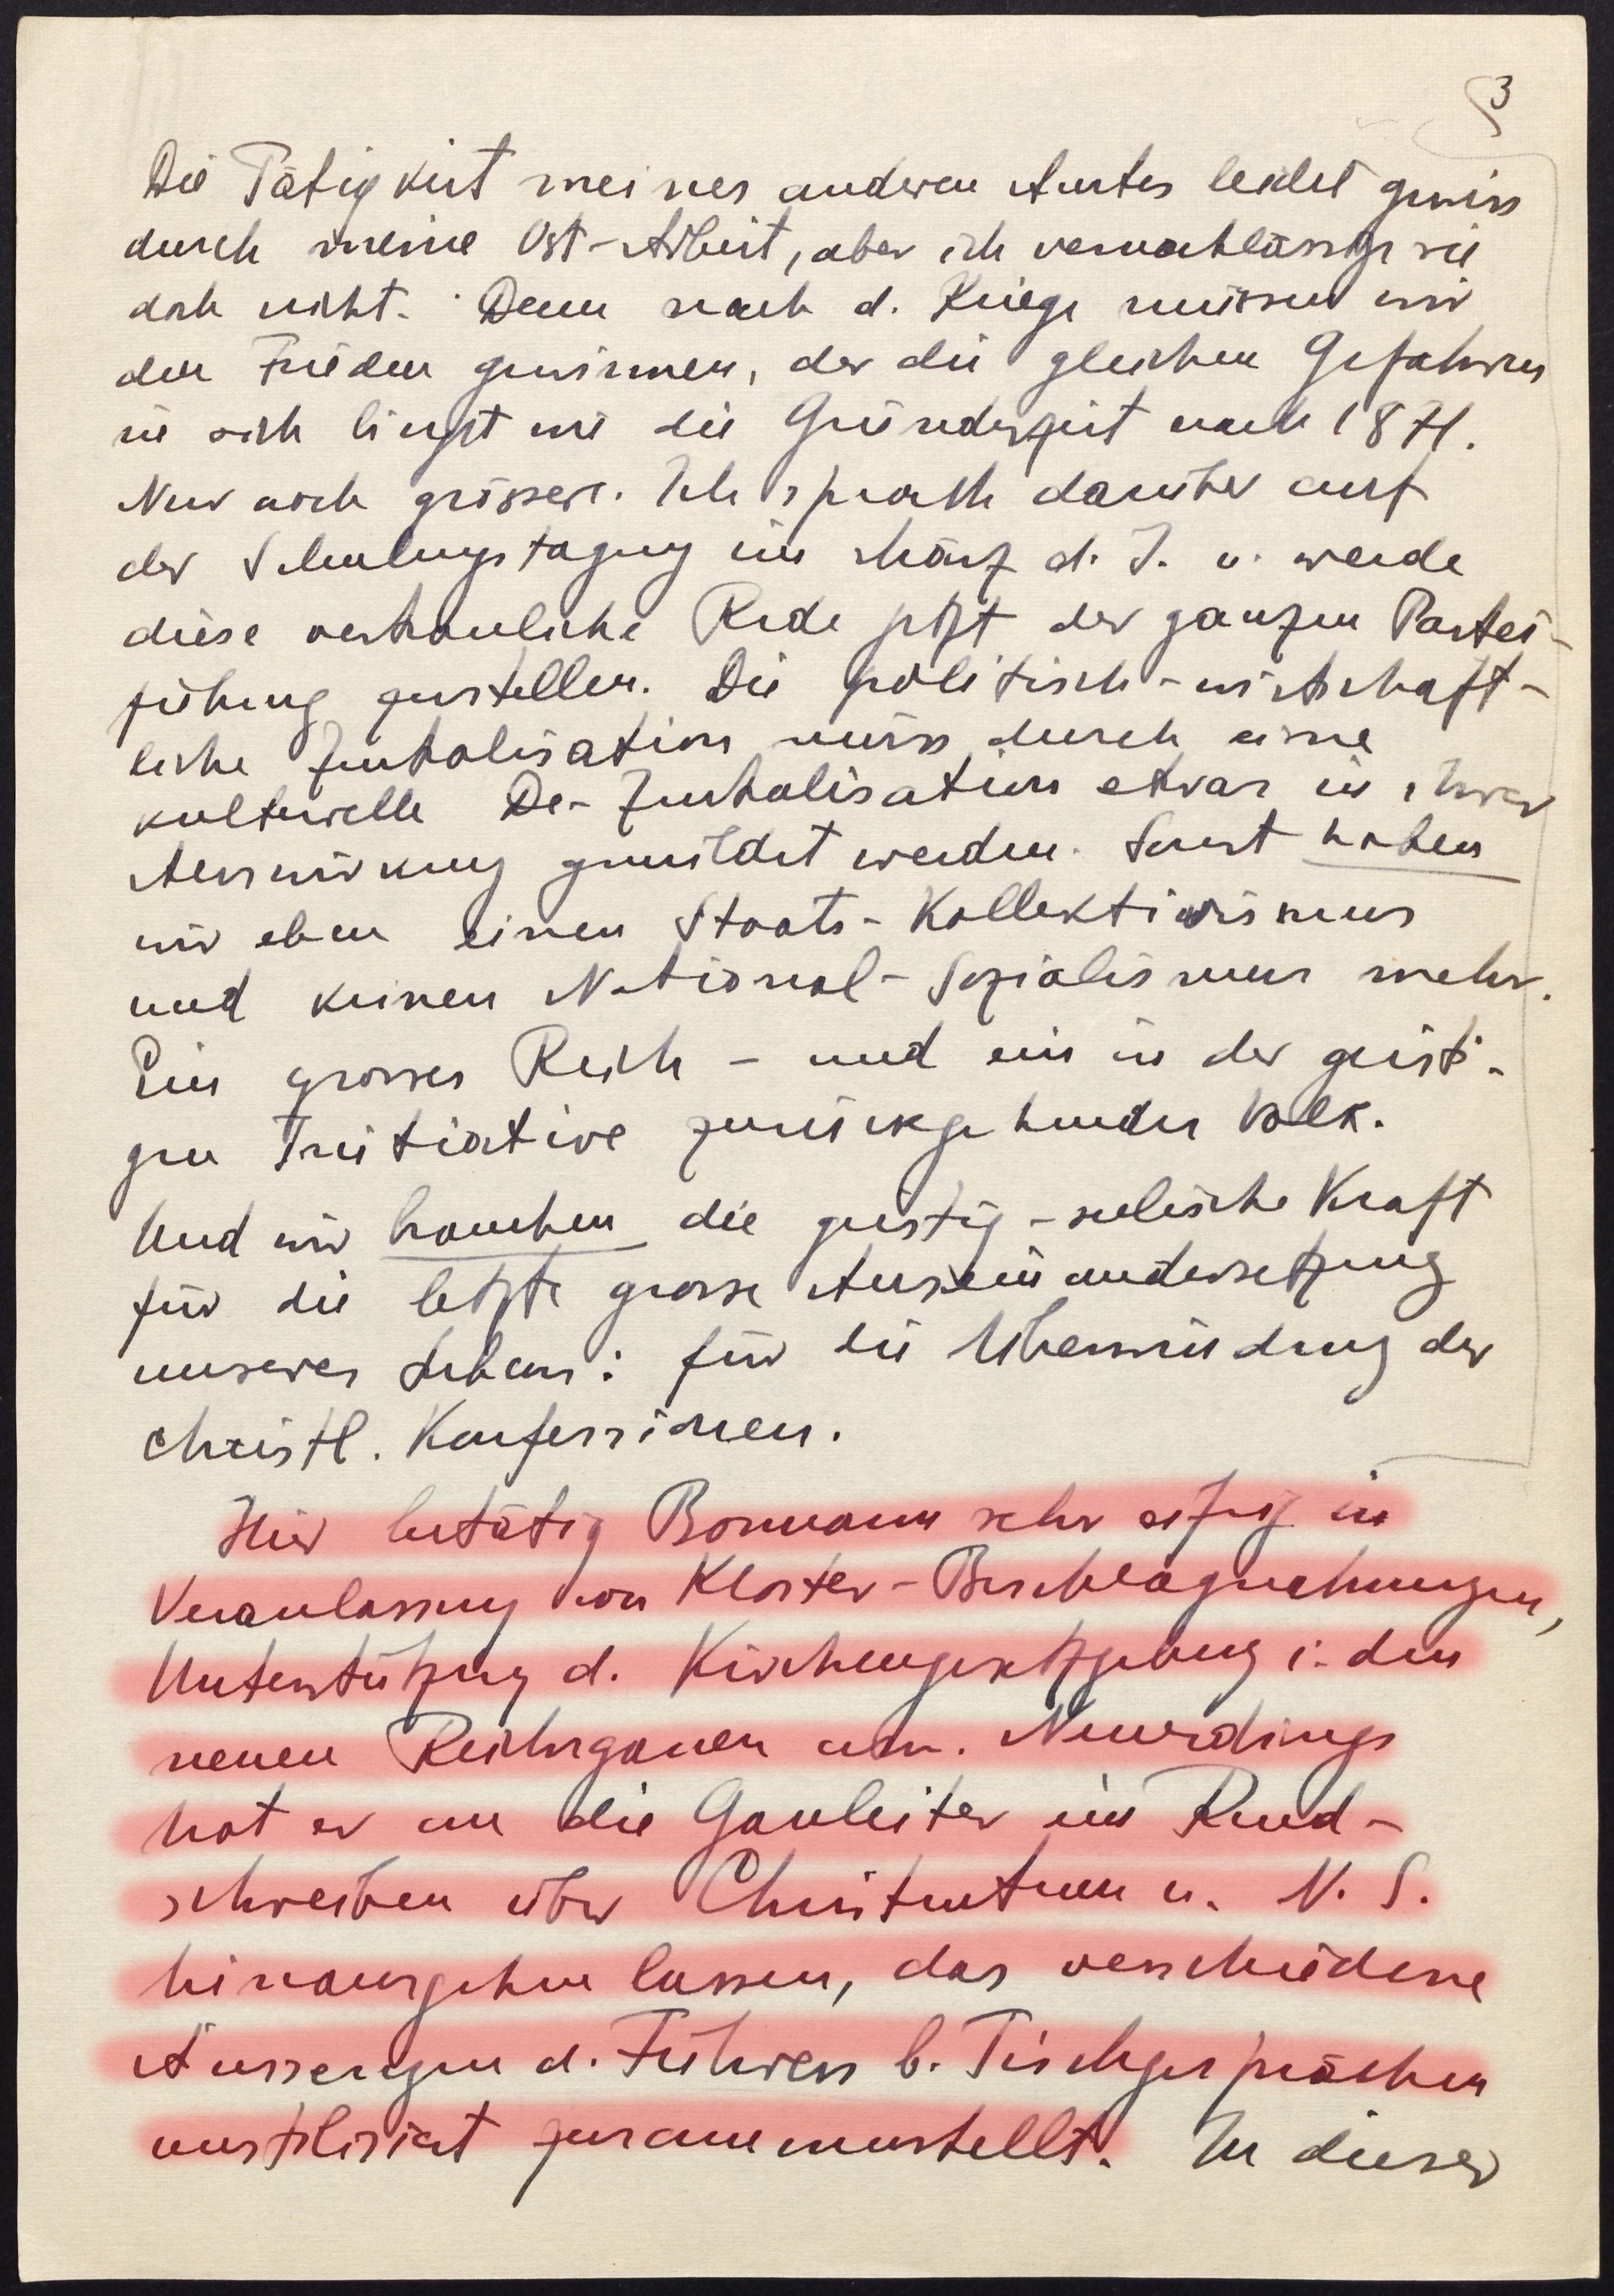 3
Die Tätigkeit meines anderen Amtes leidet gewiss
durch meine Ost-Arbeit, aber ich vernachlässige sie
doch nicht. Denn nach d. Kriege müssen wir
den Frieden gewinnen, der die gleichen Gefahren
in sich birgt wie die Gründerzeit nach 1871.
Nur noch grössere. Ich sprach darüber auf
der Schulungstagung im März d. J. u. werde
diese vertrauliche Rede jetzt der ganzen Partei-
führung zustellen. Die politisch-wirtschaft-
liche Zentralisation muss durch eine
kulturelle De-Zentralisation etwas in ihrer
Auswirkung gemildet werden. Sonst haben
wir eben einen Staats-Kollektivismus
und keinen National-Sozialismus mehr.
Ein grosses Reich - und ein in der geisti-
gen Initiative zurückgehendes Volk.
Und wir brauchen die geistig-seelische Kraft
für die letzte grosse Auseinandersetzung
unseres Lebens: für die Überwindung der
christl. Konfessionen.
Hier betätig Bormann sehr eifrig in
Veranlassung von Kloster-Beschlagnehmungen,
Unterstützung d. Kirchengesetzgebung i. den
neuen Reichsgauen usw. Neuerdings
hat er an die Gauleiter ein Rund-
schreiben über Christentum u. N. S.
hinausgehen lassen, das verschiedene
Äusserungen d. Führers b. Tischgesprächen
unstilisiert zusammenstellt. In dieser